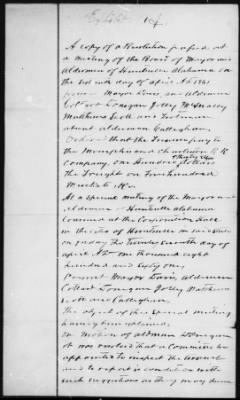 A copy of a Resolution passed at
a meeting of the Board of Mayor and
Aldermen of Huntsville Alabama on
the day of April AD 1861
Mayor Davis, Aldermen
Coltart Donegan Jolly McAnally
Matthews Scott and
absent alderman Callaghan,
Ordered that the Treasurer pay to
the Memphis and Charleston R R
Company, One Hundred Dollars
the Freight on Five hundred
Muskets &c
At a special meeting of the Mayor and
Aldermen Huntsville Alabama
Convened at the Corporation Hall
in the City of Huntsville
on the Twenty Seventh day of
April AD one thousand eight
hundred and sixty one,
Present Mayor Davis, aldermen
Coltart Donegan Jolly Matthews
Scott and Callaghan.
The object of this special meeting
having been explained.
On Motion of alderman Donegan
it was resolved that a Committee be
appointed to inspect the Arsenal
and to report its condition with
such suggestions as they may deem